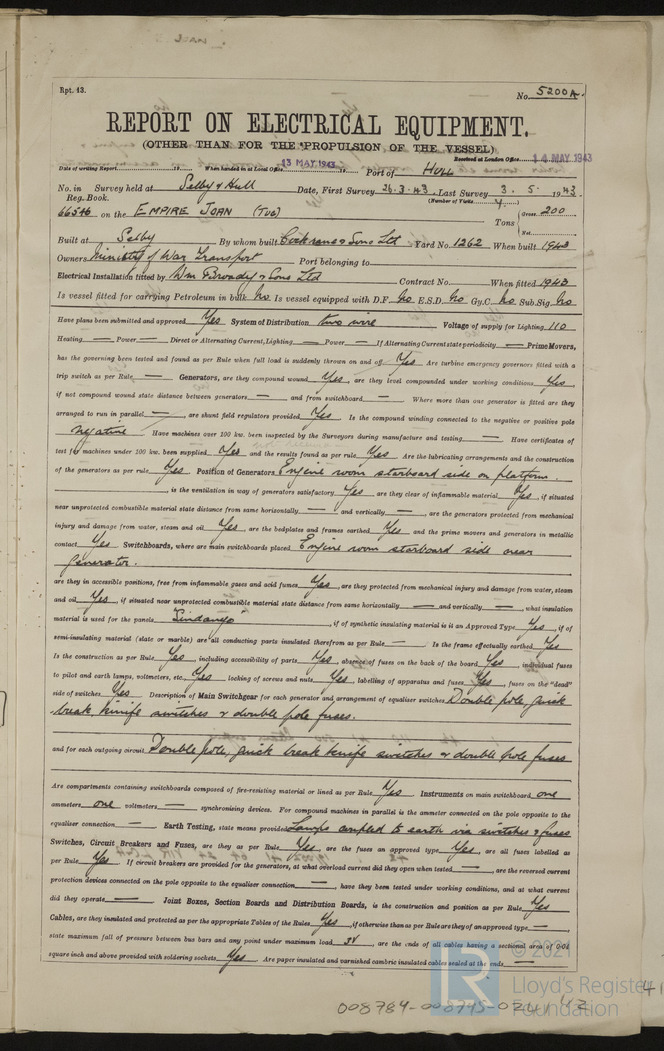 Rpt. 13.
No. 5200A.
REPORT ON ELECTRICAL EQUIPMENT.
(OTHER THAN FOR THE PROPULSION OF THE VESSEL)
Received at London Office 14 MAY 1943
Date of writing Report 19 When handed in at Local Office 13 MAY 1943 19 Port of HULL
No. in Survey held at Selby & Hull Date, First Survey 26.3.43, Last Survey 3. 5. 1943
Reg. Book. (Number of Visits 4.)
66546 on the EMPIRE JOAN (TUG) Tons { Gross 200
Net
Built at Selby By whom built Cochrane & Sons Ltd Yard No. 1262 When built 1943
Owners Ministry of War Transport Port belonging to
Electrical Installation fitted by Wm Broady & Sons Ltd Contract No. When fitted 1943
Is vessel fitted for carrying Petroleum in bulk No Is vessel equipped with D.F. No E.S.D. No Gy.C. No Sub.Sig. No
Have plans been submitted and approved Yes System of Distribution two wire Voltage of supply for Lighting 110
Heating — Power — Direct or Alternating Current, Lighting — Power — If Alternating Current state periodicity — Prime Movers,
has the governing been tested and found as per Rule when full load is suddenly thrown on and off Yes Are turbine emergency governors fitted with a
trip switch as per Rule — Generators, are they compound wound Yes, are they level compounded under working conditions Yes,
if not compound wound state distance between generators — and from switchboard — Where more than one generator is fitted are they
arranged to run in parallel —, are shunt field regulators provided Yes Is the compound winding connected to the negative or positive pole
Negative Have machines over 100 kw. been inspected by the Surveyors during manufacture and testing — Have certificates of
test for machines under 100 kw. been supplied Yes and the results found as per rule Yes Are the lubricating arrangements and the construction
of the generators as per rule Yes Position of Generators Engine room starboard side on platform.
, is the ventilation in way of generators satisfactory Yes are they clear of inflammable material Yes, if situated
near unprotected combustible material state distance from same horizontally — and vertically —, are the generators protected from mechanical
injury and damage from water, steam and oil Yes, are the bedplates and frames earthed Yes and the prime movers and generators in metallic
contact Yes Switchboards, where are main switchboards placed Engine room starboard side near
generator.
are they in accessible positions, free from inflammable gases and acid fumes Yes, are they protected from mechanical injury and damage from water, steam
and oil Yes, if situated near unprotected combustible material state distance from same horizontally — and vertically —, what insulation
material is used for the panels Sindanyo, if of synthetic insulating material is it an Approved Type Yes, if of
semi-insulating material (slate or marble) are all conducting parts insulated therefrom as per Rule — Is the frame effectually earthed Yes
Is the construction as per Rule Yes, including accessibility of parts Yes, absence of fuses on the back of the board Yes, individual fuses
to pilot and earth lamps, voltmeters, etc. Yes locking of screws and nuts Yes, labelling of apparatus and fuses Yes, fuses on the "dead"
side of switches Yes Description of Main Switchgear for each generator and arrangement of equaliser switches Double pole, quick
break, knife switches & double pole fuses.
and for each outgoing circuit Double pole, quick break knife switches & double pole fuses
Are compartments containing switchboards composed of fire-resisting material or lined as per Rule Yes Instruments on main switchboard one
ammeters one voltmeters — synchronising devices. For compound machines in parallel is the ammeter connected on the pole opposite to the
equaliser connection — Earth Testing, state means provided Lamps coupled to earth via switches & fuses
Switches, Circuit Breakers and Fuses, are they as per Rule Yes, are the fuses an approved type Yes, are all fuses labelled as
per Rule Yes If circuit breakers are provided for the generators, at what overload current did they open when tested —, are the reversed current
protection devices connected on the pole opposite to the equaliser connection —, have they been tested under working conditions, and at what current
did they operate — Joint Boxes, Section Boards and Distribution Boards, is the construction and position as per Rule Yes
Cables, are they insulated and protected as per the appropriate Tables of the Rules Yes, if otherwise than as per Rule are they of an approved type —,
state maximum fall of pressure between bus bars and any point under maximum load 3v, are the ends of all cables having a sectional area of 0.04
square inch and above provided with soldering sockets Yes Are paper insulated and varnished cambric insulated cables sealed at the ends —
© 2021
Lloyd's Register
Foundation
008784-008795-0241 1/2